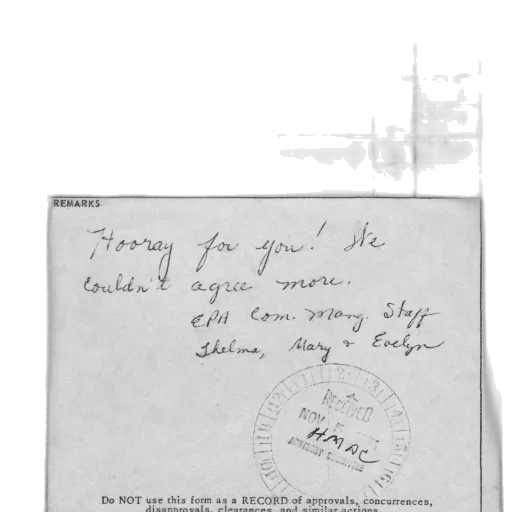 REMARKS
Hooray for you! We
couldn't agree more.
EPA Com. Mang. Staff
Thelma, Mary & Evelyn
RECEIVED
NOV 5
HMAC
ADVISORY COMMITTEE
Do NOT use this form as a RECORD of approvals, concurrences,
disapprovals, clearances, and similar actions.